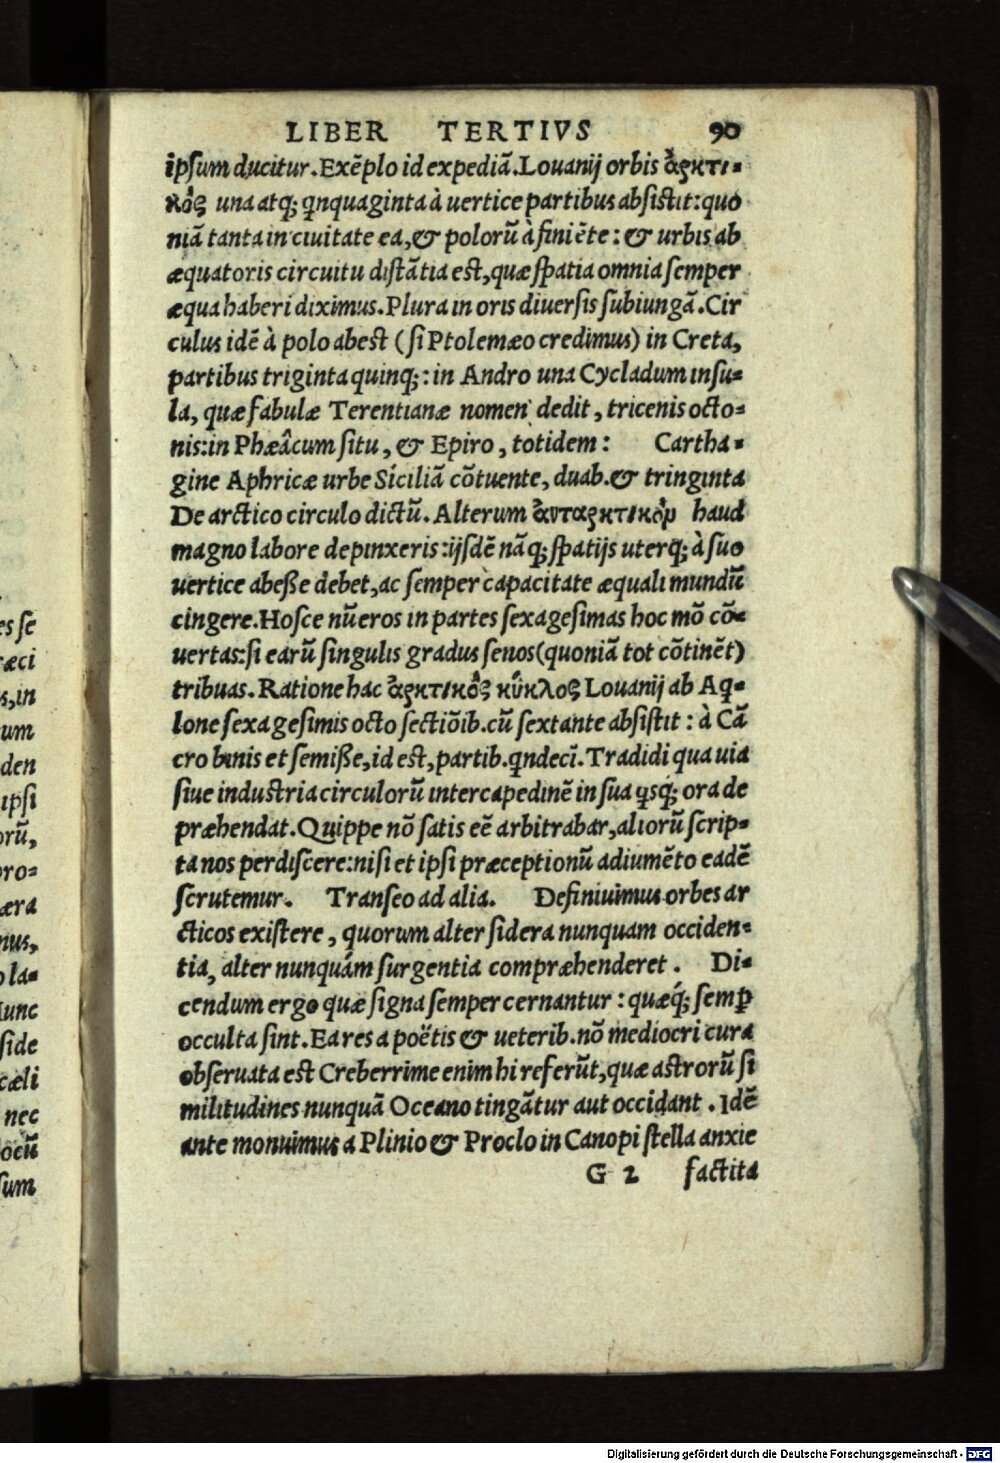 LIBER TERTIVS 90
ipsum ducitur. Exēplo id expediā. Louanij orbis ἀρκτι-
κὸς una atq; qnquaginta à uertice partibus absistit: quo
niā tanta in ciuitate ea, & polorū à finiēte: & urbis ab
æquatoris circuitu distātia est, quæ spatia omnia semper
æqua haberi diximus. Plura in oris diuersis subiungā. Cir
culus idē à polo abest (si Ptolemæo credimus) in Creta,
partibus triginta quinq;: in Andro una Cycladum insu-
la, quæ fabulæ Terentianæ nomen dedit, tricenis octo-
nis: in Phæâcum situ, & Epiro, totidem: Cartha-
gine Aphricæ urbe Siciliā cōtuente, duab. & tringinta
De arctico circulo dictū. Alterum ἀνταρκτικὸν haud
magno labore depinxeris: ijsdē nāq; spatijs uterq; à suo
uertice abesse debet, ac semper capacitate æquali mundū
cingere. Hosce nūeros in partes sexagesimas hoc mō cō-
uertas: si earū singulis gradus senos (quoniā tot cōtinēt)
tribuas. Ratione hac ἀρκτικὸς κύκλος Louanij ab Aq-
lone sexagesimis octo sectiōib. cū sextante absistit: à Cā
cro binis et semisse, id est, partib. qndecī. Tradidi qua uia
siue industria circulorū intercapedinē in sua qsq; ora de
præhendat. Quippe nō satis eē arbitrabar, aliorū scrip-
ta nos perdiscere: nisi et ipsi præceptionū adiumēto eadē
scrutemur. Transeo ad alia. Definiuimus orbes ar
cticos existere, quorum alter sidera nunquam occiden-
tia, alter nunquám surgentia compræhenderet. Di-
cendum ergo quæ signa semper cernantur: quæq́; semꝑ
occulta sint. Ea res a poëtis & ueterib. nō mediocri cura
obseruata est Creberrime enim hi referūt, quæ astrorū si
militudines nunquā Oceano tingātur aut occidant. Idē
ante monuimus a Plinio & Proclo in Canopi stella anxie
G 2 factita
es se
ræci
s, in
um
den
ipsi
orū,
pro-
æra
nus,
o la-
Nunc
side
cæli
nec
ocū
sum
Digitalisierung gefördert durch die Deutsche Forschungsgemeinschaft - DFG